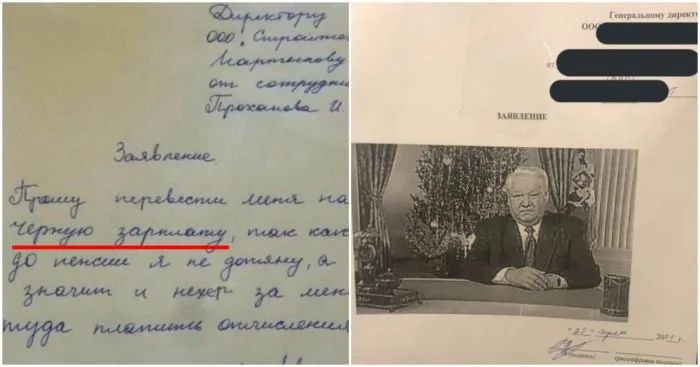 Директору
ООО "Стройте
Мартынову
от сотрудни
Проханова И.
Заявление
Прошу перевести меня на
Черную зарплату, так как
до пенсии я не дотяну, а
значит и нехер за мен
туда платить отчисления
Генеральному дирек
ООО
от
ЗАЯВЛЕНИЕ
(подпись)
(расшифровка подписи